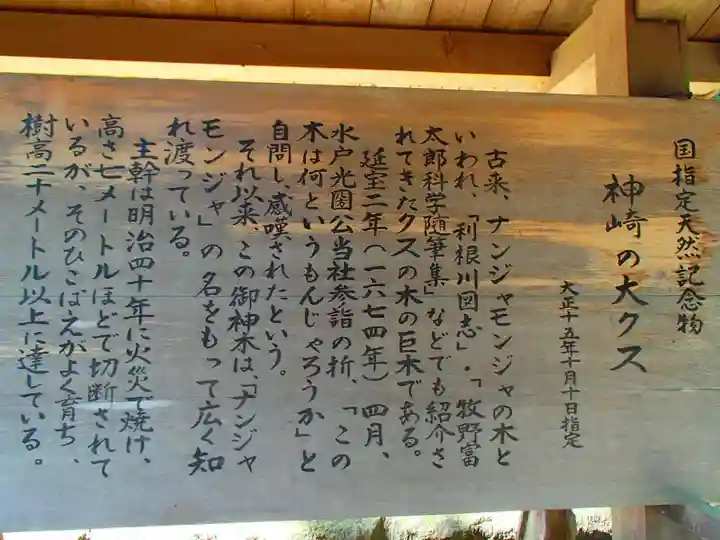 国指定天然記念物
神崎の大クス
大正十五年十月十日指定
古来、ナンジャモンジャの木と
いわれ、「利根川図志」・「牧野富
太郎科学随筆集」などでも紹介さ
れてきたクスの木の巨木である。
延宝二年(一六七四年)四月、
水戸光圀公当社参詣の折、「この
木は何というもんじゃろうか」と
自問し、感嘆されたという。
それ以来、この御神木は、「ナンジャ
モンジャ」の名をもって広く知
れ渡っている。
主幹は明治四十年に火災で焼け、
高さ七メートルほどで切断されて
いるが、そのひこばえがよく育ち、
樹高二十メートル以上に達している。